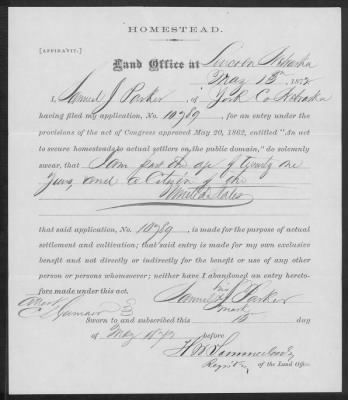 HOMESTEAD.
[AFFIDAVIT.]
Land Office at Lincoln Nebraska
May 15th 1872
I, Samuel J. Parker, of York Co Nebraska
having filed my application, No. 10789, for an entry under
provisions of the act of Congress approved May 20, 1862, entitled "An act
to secure homesteads to actual settlers on the public domain," do solemnly
swear, that I am past the age of twenty one
years, and a Citizen of the
United States
that said application, No. 10789, is made for the purpose of actual
settlement and cultivation; that said entry is made for my own exclusive
benefit and not directly or indirectly for the benefit or use of any other
person or persons whomsoever; neither have I abandoned an entry hereto-
fore made under this act.
his
Samuel J. Parker
mark
Attest
Sworn to and subscribed this 15 day
of May 1872 before
of the Land Office.